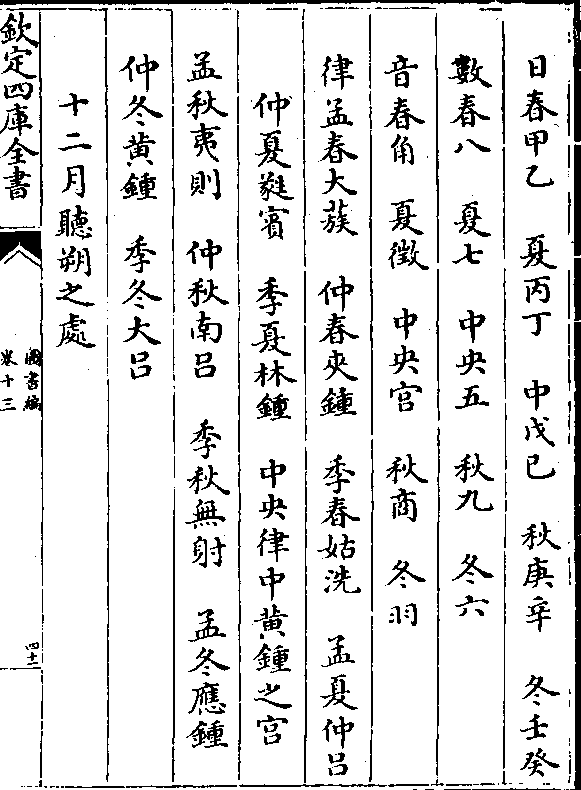 日春甲乙　夏丙丁　中戊巳　秋庚辛　冬壬癸
數春八　夏七　中央五　秋九　冬六
音春角　夏徵　中央宫　秋商　冬羽
律孟春大蔟　仲春夾鍾　季春姑洗　孟夏仲吕
仲夏蕤賓　季夏林鍾　中央律中黄鍾之宫
孟秋夷則　仲秋南吕　季秋無射　孟冬應鍾
仲冬黄鍾　季冬大吕
十二月聽朔之處
欽定四庫全書
圖書編
卷十三
四十二